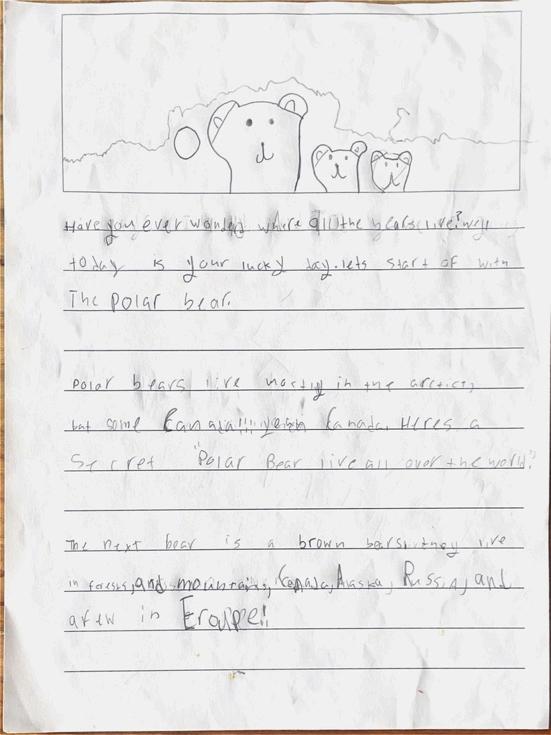 Have you ever wonded where all the bears live? well
today is your lucky day. lets start of with
The polar bear.
Polar bears live mostly in the arctics,
but some Canada!!! yeah Canada. Heres a
Secret "Polar Bear live all over the world"
The next bear is a brown bears. they live
in forests, and mountains, Canada, Alaska, Russia, and
afew in Erouppe!!